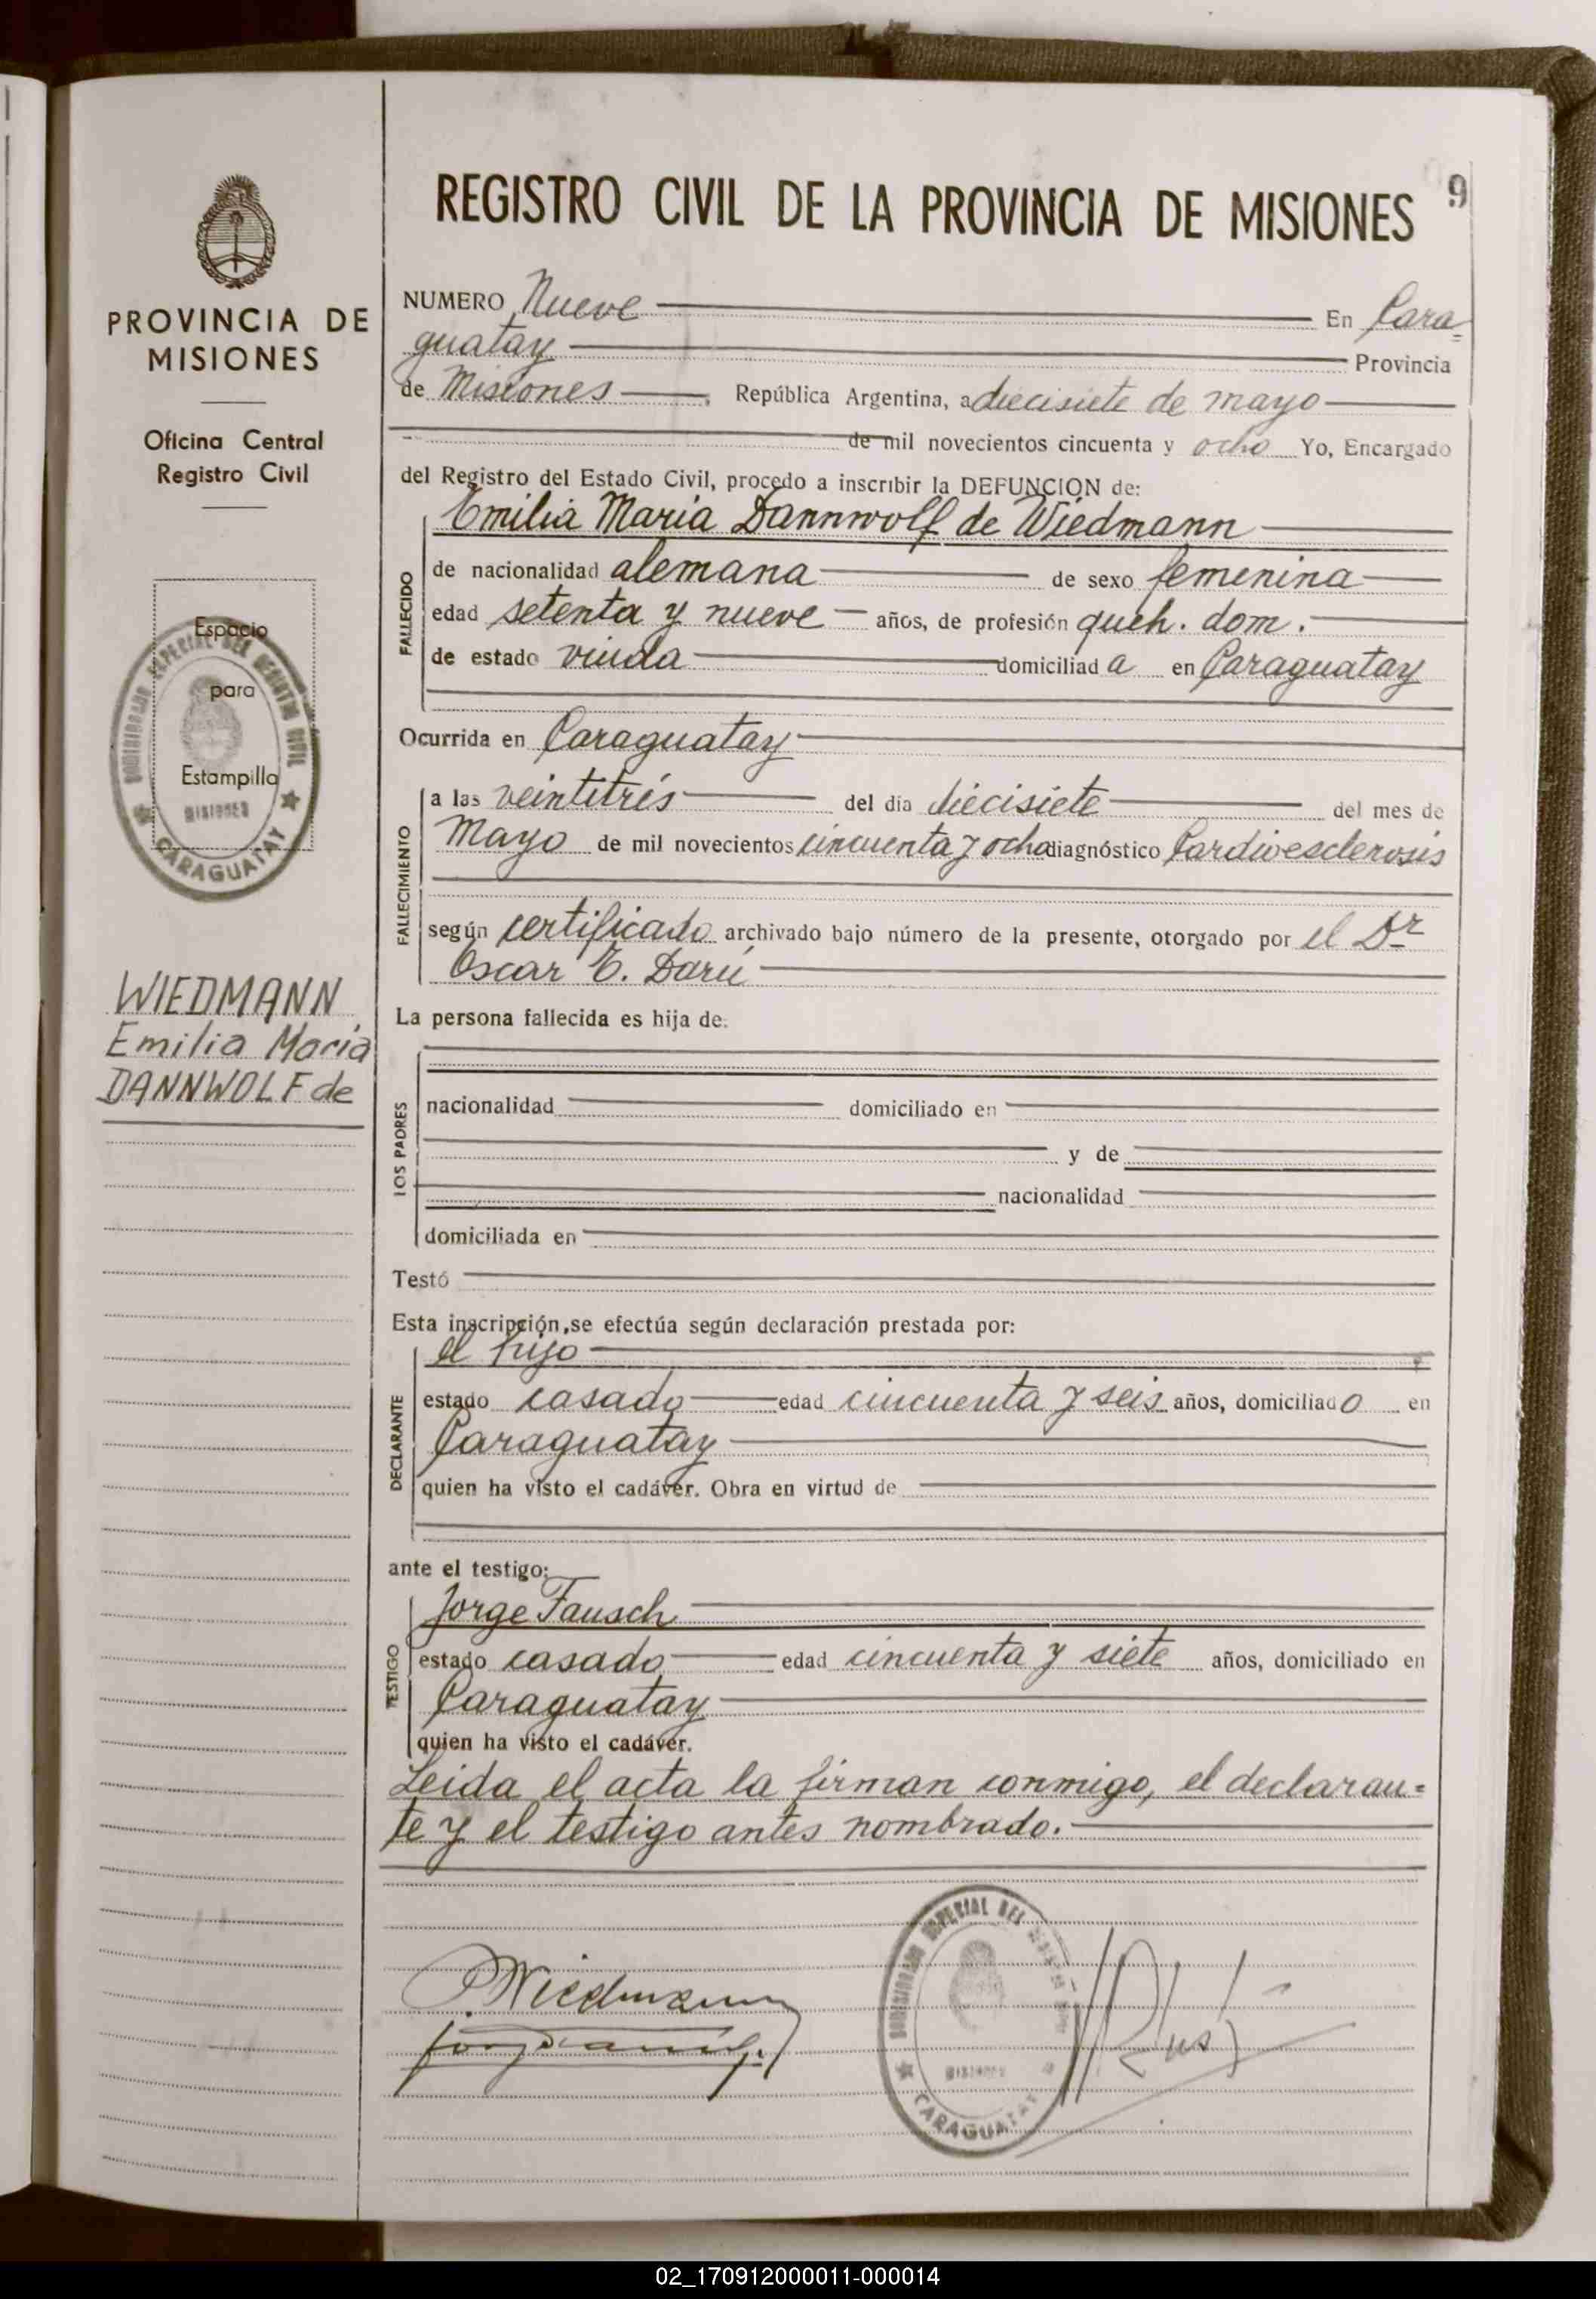 9
REGISTRO CIVIL DE LA PROVINCIA DE MISIONES
PROVINCIA DE
MISIONES
Oficina Central
Registro Civil
Espacio
para
Estampilla
MISIONES
CARAGUATAY
WIEDMANN
Emilia María
DANNWOLF de
NUMERO Nueve En Cara=
guatay Provincia
de Misiones, República Argentina, a diecisiete de mayo
de mil novecientos cincuenta y ocho Yo, Encargado
del Registro del Estado Civil, procedo a inscribir la DEFUNCION de:
Emilia María Dannwolf de Wiedmann
FALLECIDO
de nacionalidad alemana de sexo femenina
edad setenta y nueve años, de profesión queh. dom.
de estado viuda domiciliada en Caraguatay
Ocurrida en Caraguatay
FALLECIMIENTO
a las veintitrés del día diecisiete del mes de
Mayo de mil novecientos cincuenta y ocho diagnóstico Cardioesclerosis
según certificado archivado bajo número de la presente, otorgado por el Dr
Oscar E. Darú
La persona fallecida es hija de:
LOS PADRES
nacionalidad domiciliado en
y de
nacionalidad
domiciliada en
Testó
Esta inscripción, se efectúa según declaración prestada por:
el hijo
DECLARANTE
estado casado edad cincuenta y seis años, domiciliado en
Caraguatay
quien ha visto el cadáver. Obra en virtud de
ante el testigo:
Jorge Fausch
TESTIGO
estado casado edad cincuenta y siete años, domiciliado en
Caraguatay
quien ha visto el cadáver.
Leida el acta la firman conmigo, el declaran=
te y el testigo antes nombrado.
Wiedmann
MISIONES
CARAGUATAY
02_170912000011-000014